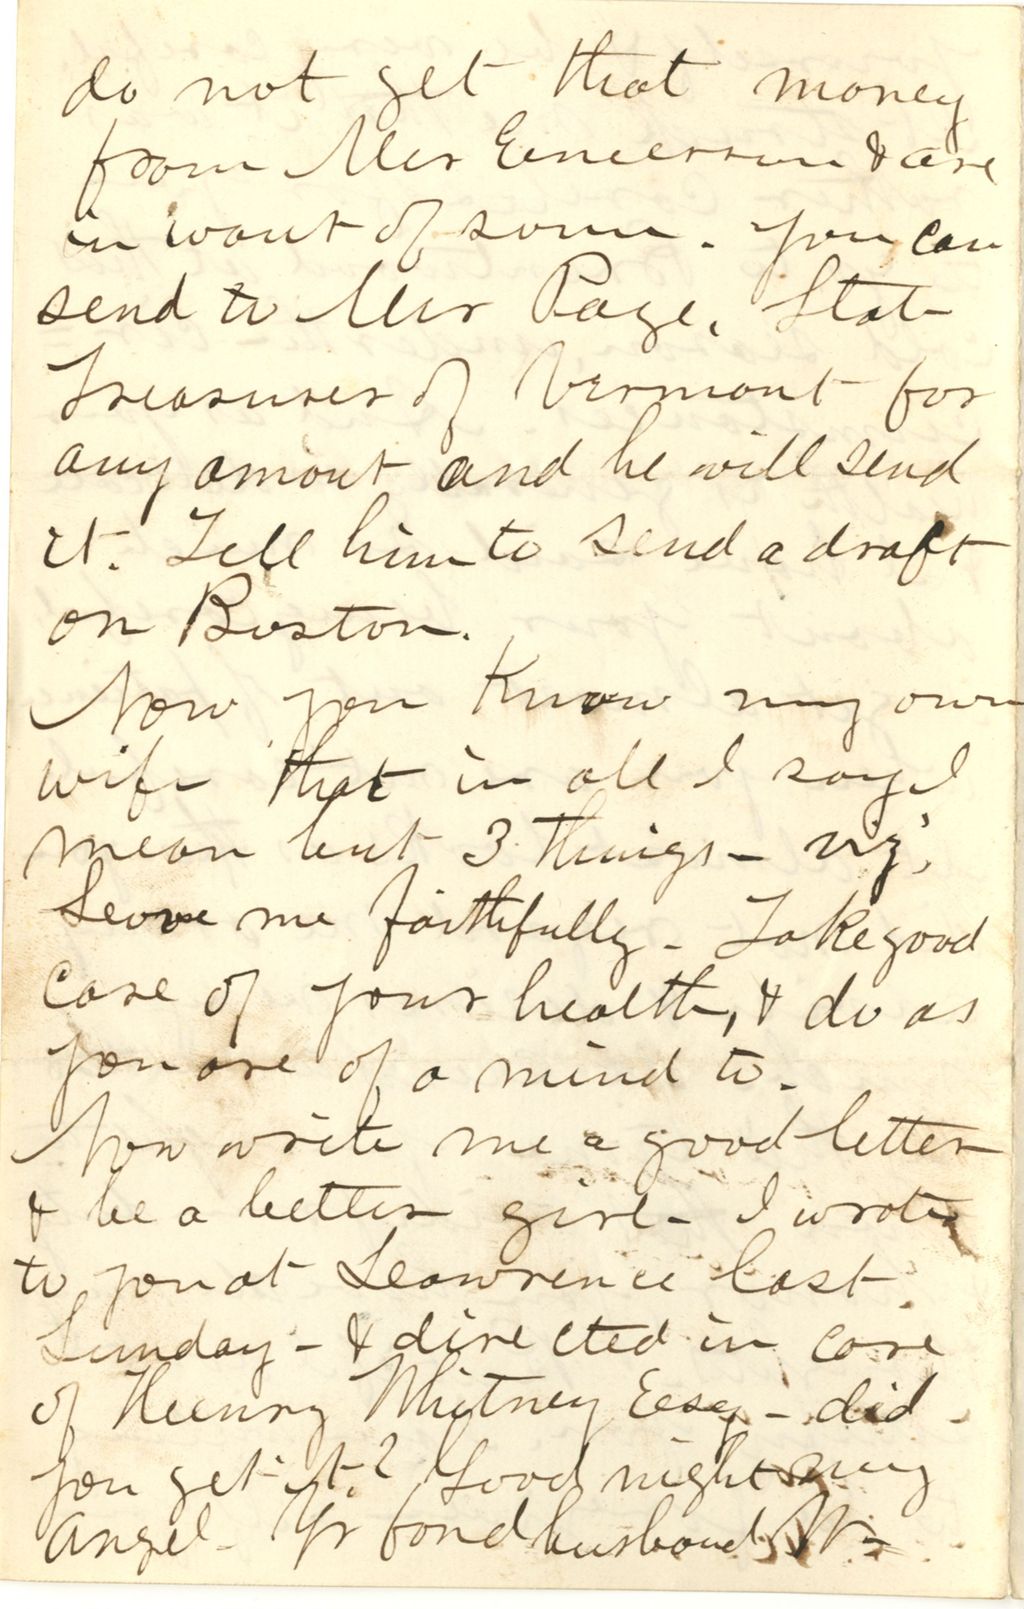 do not get that money
from Mr Emerson & are
in want of some. You can
send to Mr Page, State
Treasurer of Vermont for
any amout and he will send
it. Tell him to send a draft
on Boston.
Now you know my own
wife that in all I say I
mean but 3 things - viz;
Love me faithfully - Take good
care of your health, & do as
you are of a mind to.
Now write me a good letter
& be a better girl - I wrote
to you at Lawrence last
Sunday - & directed in care
of Henry Whitney Esq - did
you get it? Good night my
angel - Yr fond husband, W-